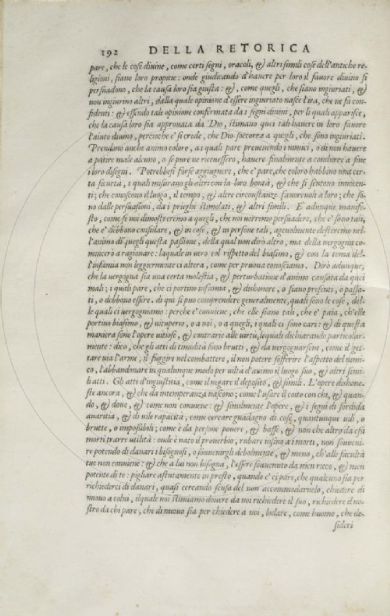 192 DELLA RETORICA
pare, che le cose divine, come certi segni, oracoli, & altri simili cose dell'antiche re-
ligioni, siano loro propitie: onde giudicando d'havere per loro il favore divino si
persuadono, che la causa loro sia giusta: &, come quegli, che siano ingiuriati, &
non ingiurino altri, dalla quale opinione d'essere ingiuriato nasce l'ira, che ne fà con-
fidenti: & essendo tale opinione confirmata da i segni divini, per li quali apparisce,
che la causa loro sia approvata da Dio, stimano quei tali havere in loro favore
l'aiuto divino, percioche e' si crede, che Dio soccorra a quegli, che sono ingiuriati.
Prendono anche animo coloro, a i quali pare prevenendo i nimici, o di non havere
a patire male alcuno, o se pure ne ricevessero, havere finalmente a condurre a fine
i loro disegni. Potrebbesi forse aggiugnere, che e' pare, che coloro habbino una cer-
ta sicurtà, i quali misurano gli altri con la loro bontà, & che si sentono innocen-
ti; che conoscono il luogo, il tempo, & altre circonstanze favorevoli a loro; che sie-
no dalle persuasioni, da i prieghi stimolati; & altri simili. E' adunque manife-
sto, come se noi dimostreremo a quegli, che noi vorremo persuadere, che e' sono tali,
che e' debbono confidare, & in cose, & in persone tali, agevolmente desteremo nel-
l'animo di quegli questa passione, della qual non dirò altro, ma della vergogna co-
mincerò a ragionare: laquale in vero col rispetto del biasimo, & con la tema del-
l'infamia non leggiermente ci altera, come per pruova conosciamo. Dirò adunque,
che la vergogna sia una certa molestia, & perturbatione d'animo causata da quei
mali; i quali pare, che ci portino infamia, & disonore, o siano presenti, o passa-
ti, o debbono essere. di qui si può comprendere generalmente, quali sono le cose, del-
le quali ci vergogniamo: perche e' conviene, che elle siano tali, che e' paia, ch'elle
portino biasimo, & vituperio, o a noi, o a quegli, i quali ci sono cari: & di questa
maniera sono l'opere vitiose, & contrarie alle virtù, lequali dichiarando particolar-
mente: dico, che gli atti di timidità sono brutti, & da vergognarsene, come il get-
tare via l'arme, il fuggire nel combattere, il non potere sofferire l'aspetto del nimi-
co, l'abbandonare in qualunque modo per viltà d'animo il luogo suo, & altri simi-
li atti. Gli atti d'ingiustitia, come il negare il deposito, & simili. L'opere dishone-
ste ancora, & che da intemperanza naschino; come l'usare il coito con chi, quan-
do, & dove, & come non conviene: & similmente l'opere, & i segni di sordida
avaritia, & di vile rapacità; come cercare guadagno di cose, quantunque vili, o
brutte, o impossibili; come è da persone povere, & basse, & non che altro da essi
morti trarre utilità: onde è nato il proverbio, rubare insino a i morti, non sovveni-
re potendo di danari i bisognosi, o sovvenirgli debolmente, & meno, ch'alle facultà
tue non conviene: & che a lui non bisogna, l'essere sovvenuto da men ricco, & men
potente di te: pigliare assiduamente in presto, quando e' ci pare, che qualcuno sia per
richiederci di danari, quasi cercando scusa del non accommodarnelo, chiedere di
nuovo a colui, il quale noi stimiamo dovere da noi richiedere il suo, richiedere il no-
stro da chi pare, che di nuovo sia per chiedere a noi, lodare, come huomo, che de-
sideri